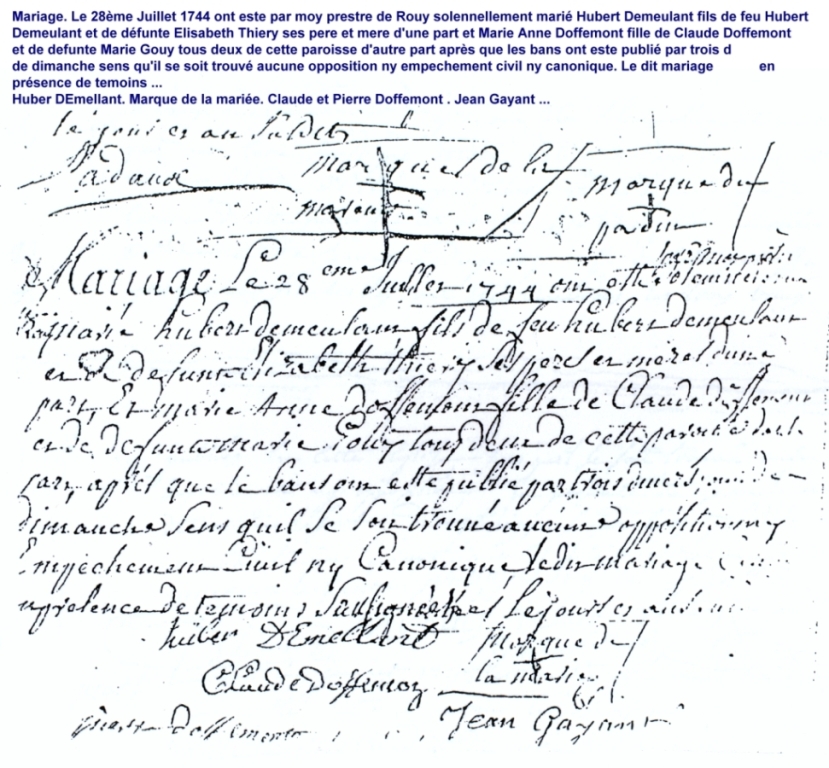 Mariage. Le 28ème Juillet 1744 ont este par moy prestre de Rouy solennellement marié Hubert Demeulant fils de feu Hubert
Demeulant et de défunte Elisabeth Thiery ses pere et mere d'une part et Marie Anne Doffemont fille de Claude Doffemont
et de defunte Marie Gouy tous deux de cette paroisse d'autre part après que les bans ont este publié par trois d
de dimanche sens qu'il se soit trouvé aucune opposition ny empechement civil ny canonique. Le dit mariage en
présence de temoins ...
Huber DEmellant. Marque de la mariée. Claude et Pierre Doffemont . Jean Gayant ...
le jour et an
marque de la
marque du
Mariage Le 28eme Juillet 1744 ont esté
marié hubert demeulant fils de feu hubert demeulant
et de defunte Elizabeth thiery ses pere et mere d'une
part, Et marie Anne doffemont fille de Claude doffemont
et de defunte marie Gouy tous deux de cette paroisse
part, aprés que le bans ont esté publié par trois divers
dimanche sens quil se soit trouvé aucune opposition ny
Empechement Civil ny Canonique le dit mariage
presence de temoins le jour et an
huber DEmellant marque de
la mariée
Claude Doffemont
pierre doffemont Jean Gayant